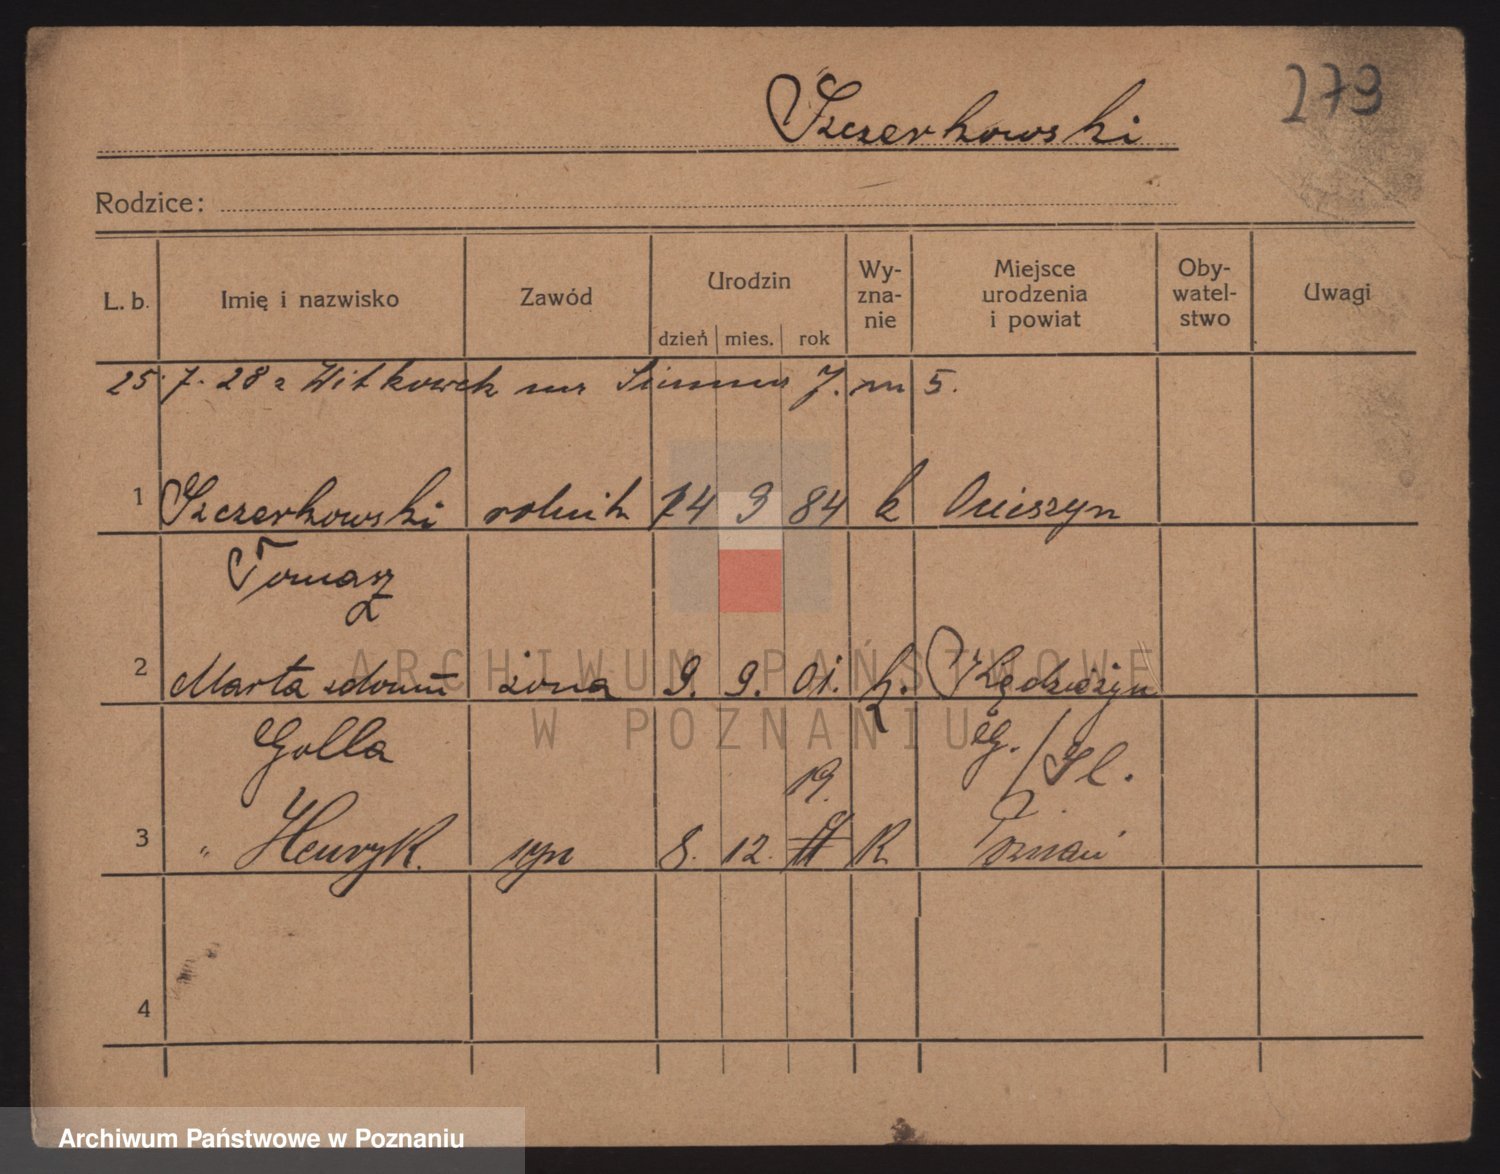 279
Szczerkowski
Rodzice:
L. b. Imię i nazwisko Zawód Urodzin dzień mies. rok Wy-zna-nie Miejsce urodzenia i powiat Oby-watel-stwo Uwagi
25. 7. 28 z Witkowek na J. nr 5.
1 Szczerkowski rolnik 14 9 84 k Ociszyn
Tomasz
2 Marta z domu żona 9. 9. 01. k. Kędzieżyn
Golla G./Śl.
19.
3 " Henryk. syn 8. 12. K Poznań
4
ARCHIWUM PAŃSTWOWE
W POZNANIU
Archiwum Państwowe w Poznaniu